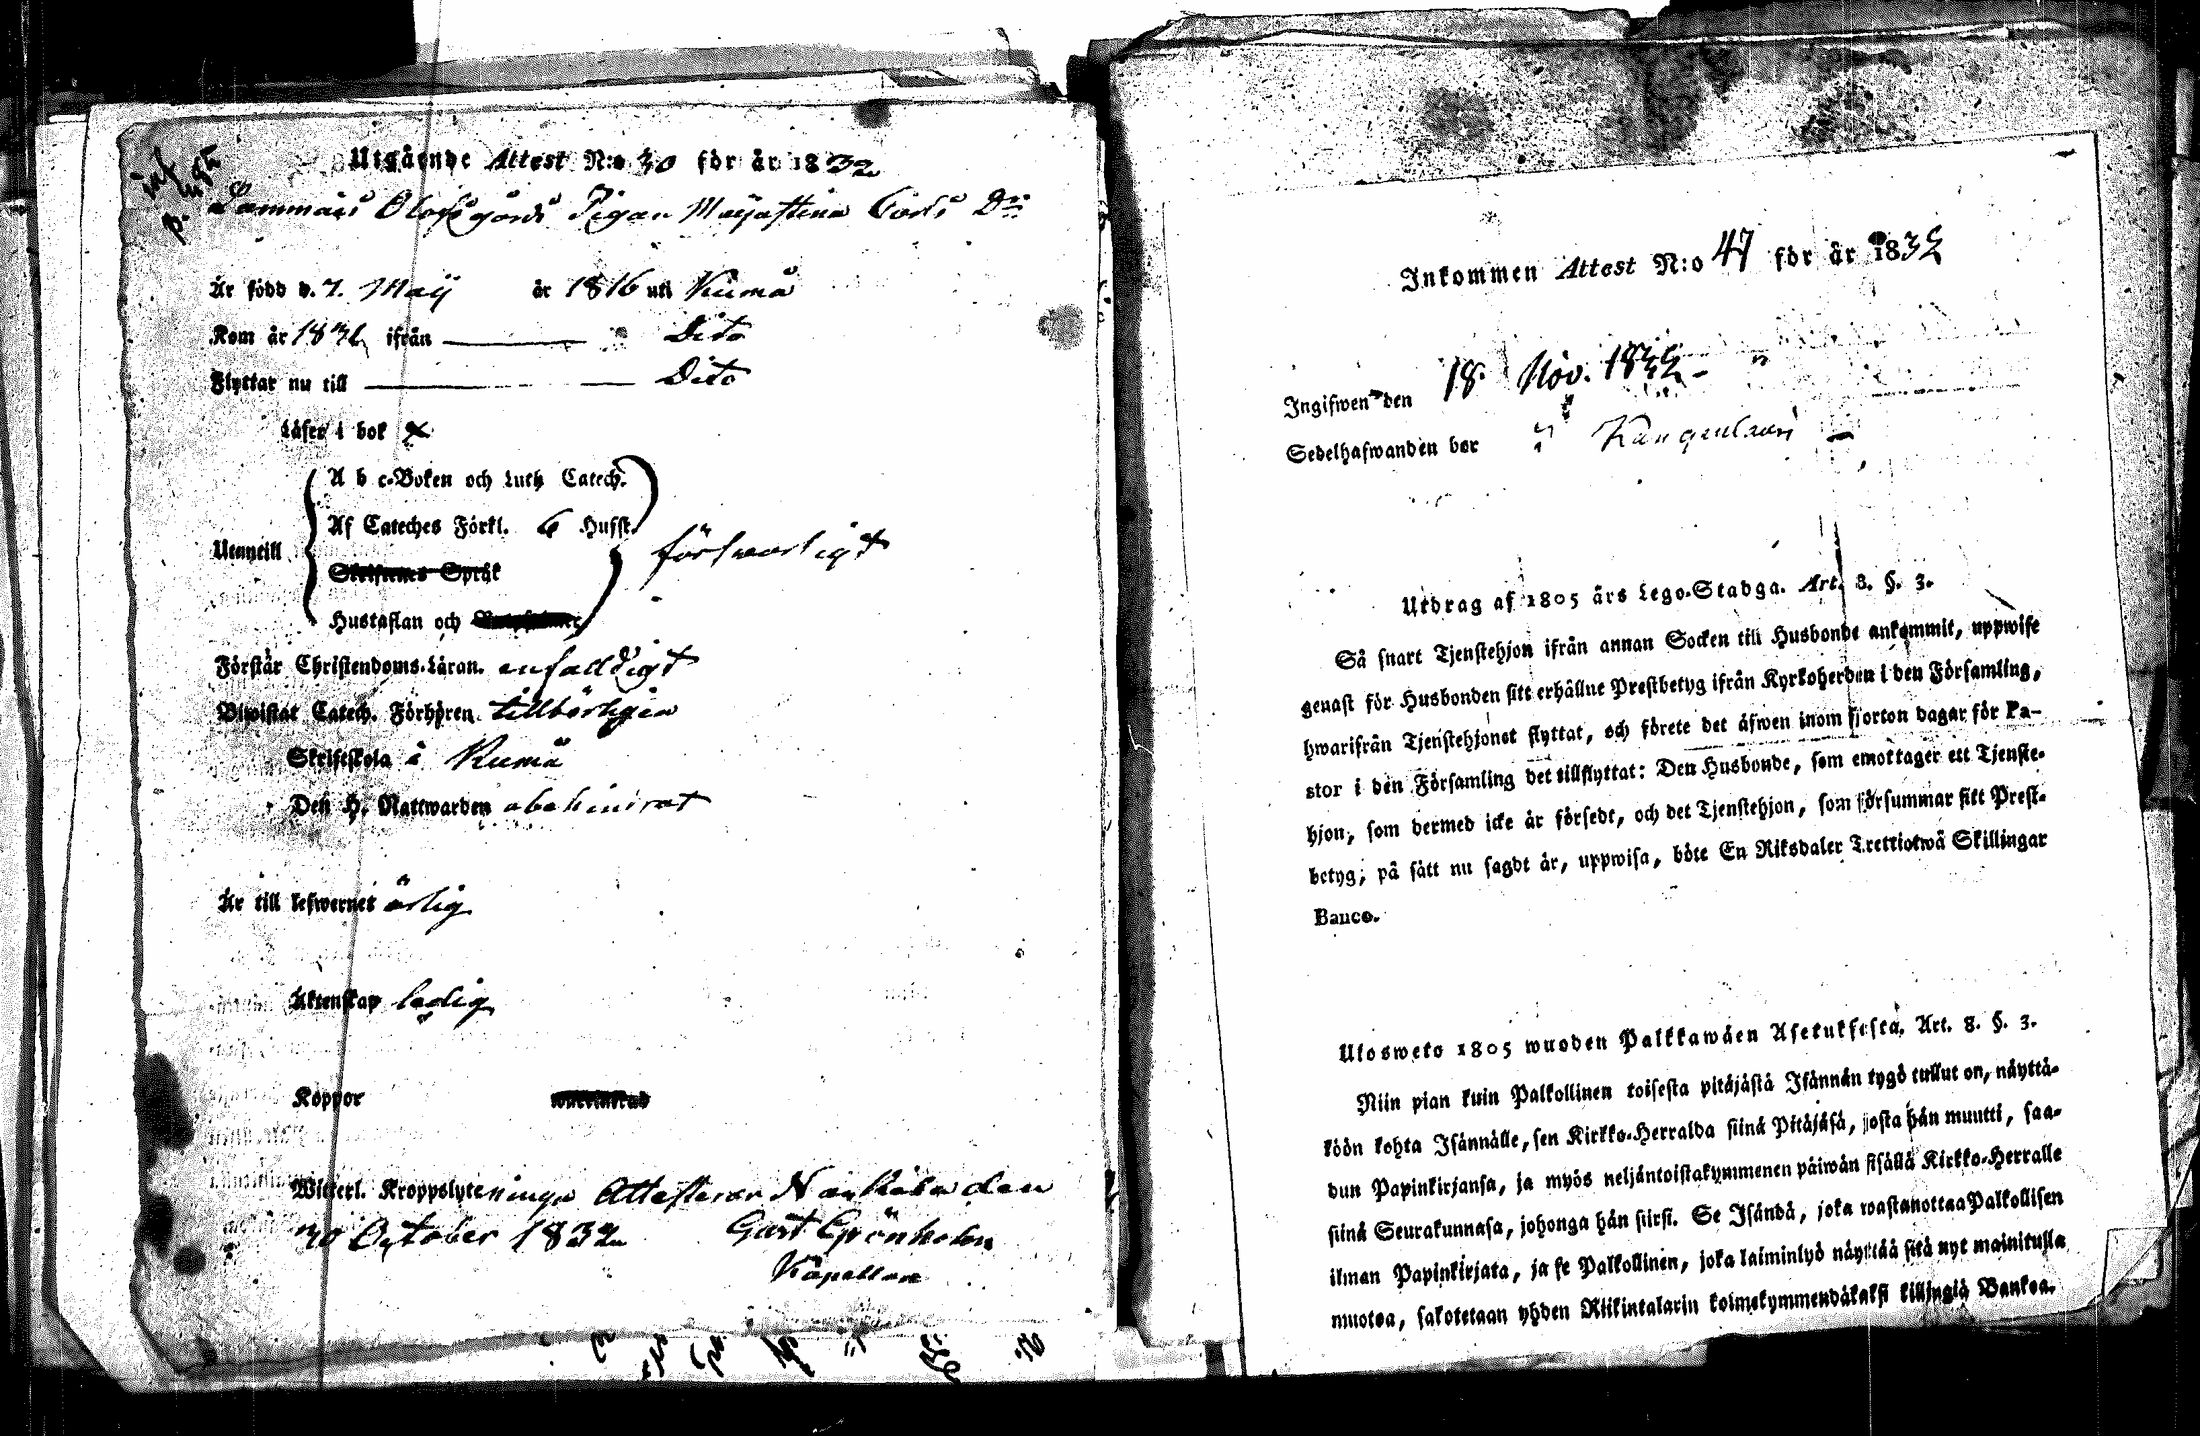 Utgående Attest N:o 30 för år 1832
Olofsgårds Pigan Majastina Carls Dr
Är född d. 7. Maij år 1816 uti Kumå
Kom år 1831 ifrån Dito
Flyttar nu till Dito
Läser i bok x
A b c-Boken och Luth Catech.
Af Cateches Förkl. 6 Hufst.
Utantill försvarligt
Skriftenes Språk
Hustaflan och
Förstår Christendoms-Läran. enfalldigt
Biwistat Catech. Förhören tillbörligen
Skriftskola i Kumå
Den H. Nattwarden abs
Är till lefwernet ärlig
Äktenskap ledig
Koppor
Witterl. Kroppslyte ninga Attesterar Nakkila den
30 October 1832 Gust Grönholm
Kapellan
Inkommen Attest N:o 47 för år 1832
Ingifwen den 18. Nov. 1832
Sedelhafwanden bor
Utdrag af 1805 års Lego-Stadga. Art. 8. §. 3.
Så snart Tjenstehjon ifrån annan Socken till Husbonde ankommit, uppwise
genast för Husbonden sitt erhållne Prestbetyg ifrån Kyrkoherden i den Församling,
hwarifrån Tjenstehjonet flyttat, och förete det äfwen inom fjorton dagar för Pa-
stor i den Församling det tillflyttat: Den Husbonde, som emottager ett Tjenste-
hjon, som dermed icke är försedt, och det Tjenstehjon, som försummar sitt Prest-
betyg, på sätt nu sagdt är, uppwisa, böte En Riksdaler Trettiotwå Skillingar
Banco.
Ulosweto 1805 wuoden Palkkawäen Asetuksesta, Art. 8. §. 3.
Niin pian kuin Palkollinen toisesta pitäjästä Isännän tygö tullut on, näyttä-
köön kohta Isännälle, sen Kirkko-Herralda siinä Pitäjäsä, josta hän muutti, saa-
dun Papinkirjansa, ja myös neljäntoistakymmenen päiwän sisällä Kirkko-Herralle
siinä Seurakunnasa, johonga hän siirsi. Se Isändä, joka wastanottaa Palkollisen
ilman Papinkirjata, ja se Palkollinen, joka laiminlyö näyttää sitä nyt mainitulla
muotoa, sakotetaan yhden Riikintalarin kolmekymmendäkaksi killingiä Bankoa.